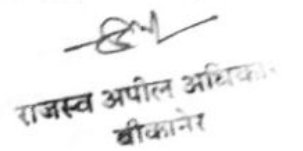 राजस्व अपील अधिका
बीकानेर